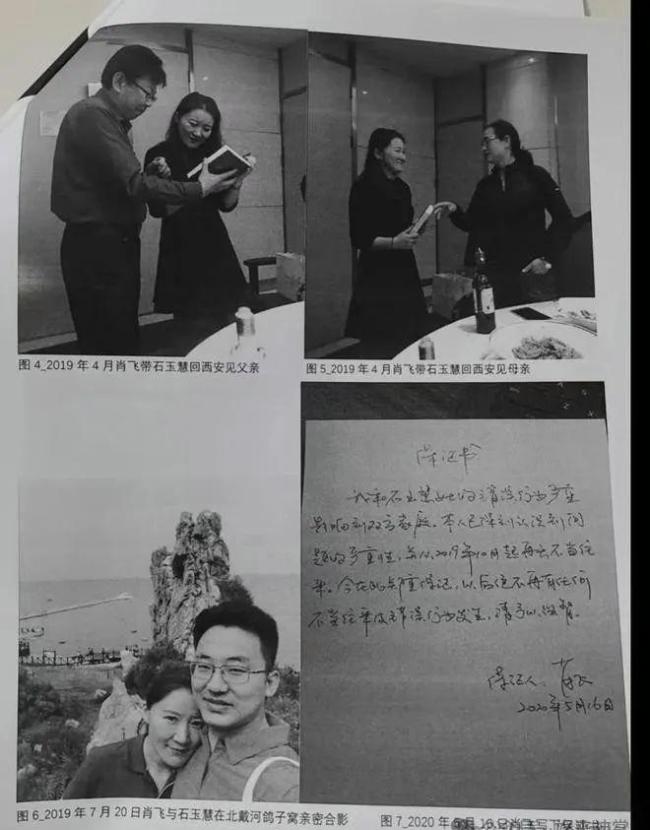 图 4_2019 年 4 月肖飞带石玉慧回西安见父亲
图 5_2019 年 4 月肖飞带石玉慧回西安见母亲
保证书
我和石玉慧女士的婚外情行为严重
影响到双方家庭。本人已深刻认识到问
题的严重性,并从2019年10月起再无不当往
来。今在此郑重保证,以后绝不再有任何
不当往来及错误行为发生,请予以
保证人:肖飞
2020年5月16日
图 6_2019 年 7 月 20 日肖飞与石玉慧在北戴河鸽子窝亲密合影
图 7_2020 年 5 月 16 日肖飞写下保证书